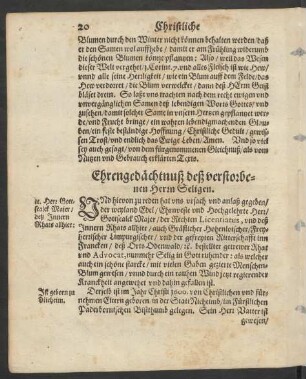 20 Christliche
Blumen durch den Winter nicht können behalten werden/ daß
er den Samen wol auffhebe / damit er am Frühling widerumb
die schönen Blumen könne pflantzen: Also / weil das Wesen
dieser Welt vergehet / 1. Corint. 7. und alles Fleisch ist wie Hew /
unnd alle seine Herrligkeit / wie ein Blum auff dem Felde / das
Hew verdorret / die Blum verwelcket / dann deß HErrn Geist
bläset drein. So last uns trachten nach dem ewigen und un-
vergängglichen Samen deß lebendigen Worts Gottes / und
zusehen / damit solcher Same in unsern Hertzen gepflantzet wer-
de / und Frucht bringe / ein wahren lebendigmachenden Glau-
ben / ein feste beständige Hoffnung / Christliche Gedult / gewis-
sen Trost / und endlich das Ewige Leben / Amen. Und so viel
sey auch gesagt / von dem fürgenommenen Gleichnuß / als vom
Nutzen und Gebrauch erklärten Texts.
Ehrengedächtnuß deß verstorbe-
nen Herrn Seligen.
Herr Gott-
fried Majer /
deß Innern
Rhats allhier:
Und hiervon zu reden hat uns ursach und anlaß gegeben /
der weyland Edel / Ehrnveste und Hochgelehrte Herr /
der Rechten Licentiatus, und deß
Innern Rhats allhier / auch Gräfflicher Hohenloischer / Frey-
herrischer Limpurgischer / und der gefreyten Ritterschafft inn
Francken / deß Orts Ottenwald / bestellter getrewer Rhat
und Advocat, nunmehr Selig in Gott ruhender: als welcher
auch ein schöne starcke / mit vielen Gaben gezierte Menschen-
Blum gewesen / unnd durch ein rauhen Wind jetzt regierender
Kranckheit angewehet und dahin gefallen ist.
Ist geborn zu
Derselb ist im Jahr Christi 1600. von Christlichen und für-
nehmen Eltern geboren in der Statt im Fürstlichen
Paderbornischen Bisthumb gelegen. Sein Herr Vatter ist
gewesen /